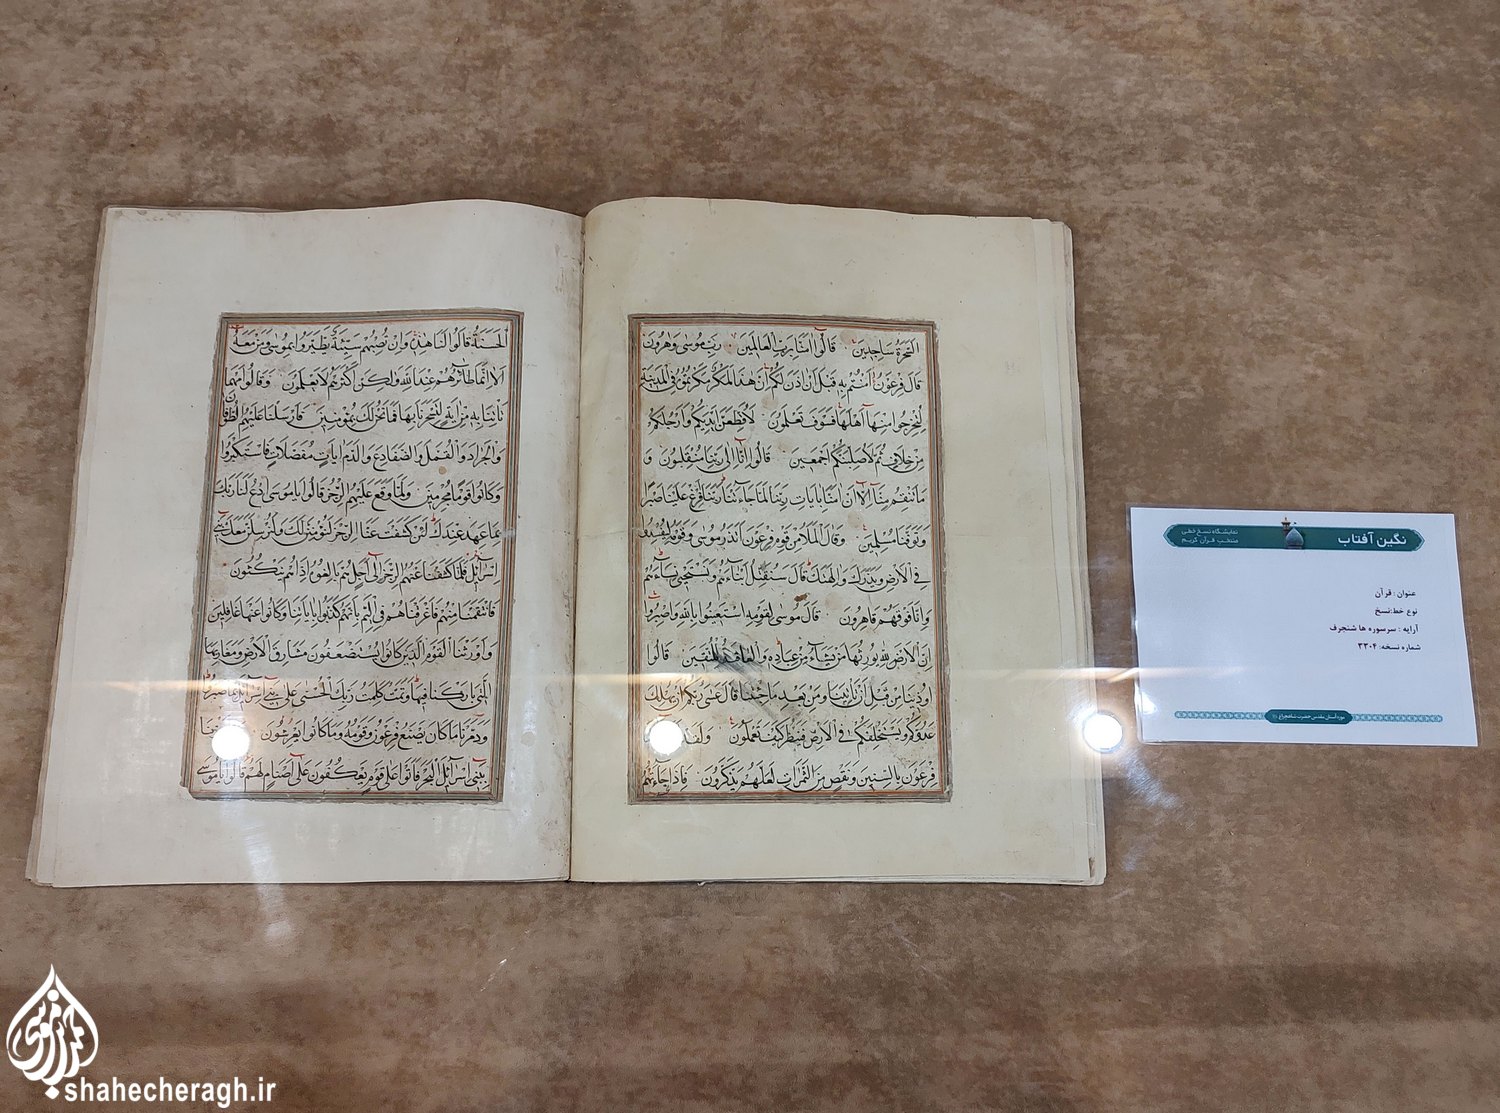 السحرة ساجدين قالوا امنا برب العالمين رب موسى وهرون
قال فرعون امنتم به قبل ان اذن لكم ان هذا لمكر مكرتموه في المدينة
لتخرجوا منها اهلها فسوف تعلمون لاقطعن ايديكم وارجلكم
من خلاف ثم لاصلبنكم اجمعين قالوا انا الى ربنا منقلبون و
ما تنقم منا الا ان امنا بايات ربنا لما جاءتنا ربنا افرغ علينا صبرا
وتوفنا مسلمين وقال الملا من قوم فرعون اتذر موسى وقومه ليفسدوا
في الارض ويذرك والهتك قال سنقتل ابناءهم ونستحيي نساءهم
وانا فوقهم قاهرون قال موسى لقومه استعينوا بالله واصبروا
ان الارض لله يورثها من يشاء من عباده والعاقبة للمتقين قالوا
اوذينا من قبل ان تاتينا ومن بعد ما جئتنا قال عسى ربكم ان يهلك
عدوكم ويستخلفكم في الارض فينظر كيف تعملون ولقد
فرعون بالسنين ونقص من الثمرات لعلهم يذكرون فاذا جاءتهم
الحسنة قالوا لنا هذه وان تصبهم سيئة يطيروا بموسى ومن معه
الا انما طائرهم عند الله ولكن اكثرهم لا يعلمون وقالوا مهما
تاتنا به من اية لتسحرنا بها فما نحن لك بمؤمنين فارسلنا عليهم الطوفان
والجراد والقمل والضفادع والدم ايات مفصلات فاستكبروا
وكانوا قوما مجرمين ولما وقع عليهم الرجز قالوا يا موسى ادع لنا ربك
بما عهد عندك لئن كشفت عنا الرجز لنؤمنن لك ولنرسلن معك بني
اسرائيل فلما كشفنا عنهم الرجز الى اجل هم بالغوه اذا هم ينكثون
فانتقمنا منهم فاغرقناهم في اليم بانهم كذبوا باياتنا وكانوا عنها غافلين
واورثنا القوم الذين كانوا يستضعفون مشارق الارض ومغاربها
التي باركنا فيها وتمت كلمت ربك الحسنى على بني اسرائيل بما صبروا
ودمرنا ما كان يصنع فرعون وقومه وما كانوا يعرشون
ببني اسرائيل البحر فاتوا على قوم يعكفون على اصنام لهم قالوا يا موسى
نگین آفتاب
نمایشگاه نسخ خطی
منتخب قرآن کریم
عنوان : قرآن
نوع خط:نسخ
آرایه : سرسوره ها شنجرف
شماره نسخه: ۳۳۰۴
موزه آستان مقدس حضرت شاهچراغ
shahecheragh.ir